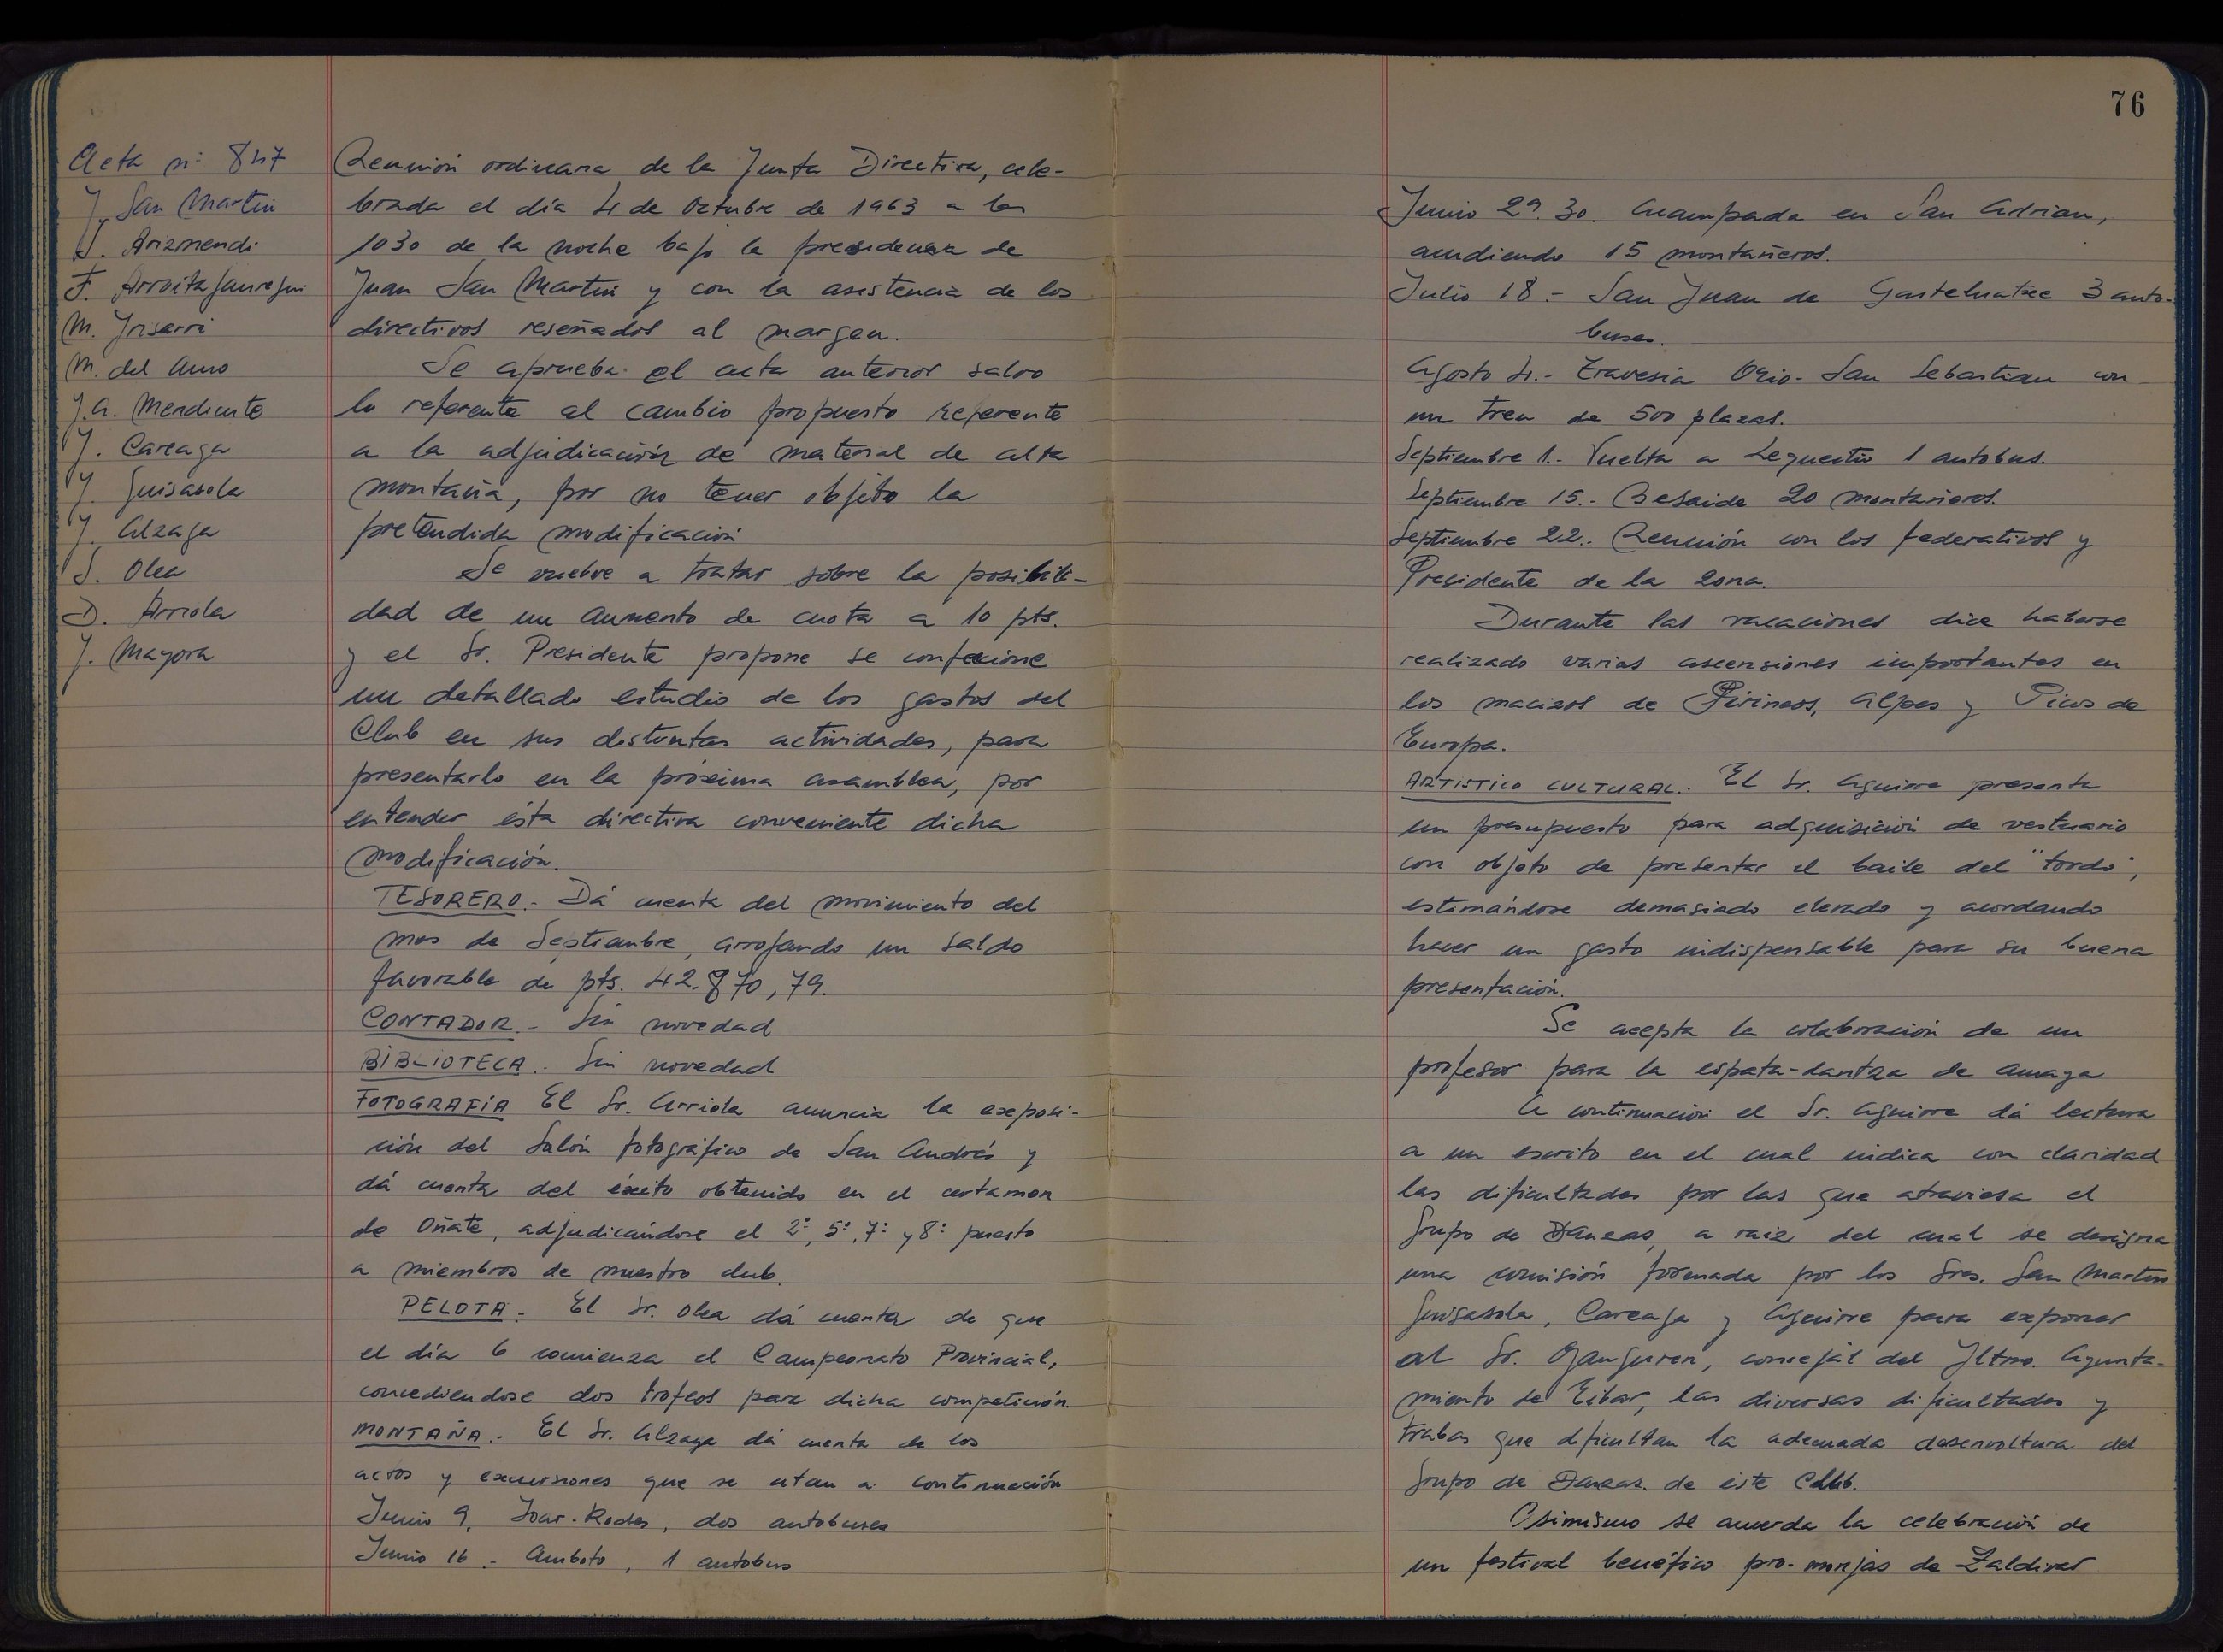 Acta nº 847
J. San Martin
S. Arizmendi
F. Arroitajauregui
M. Irisarri
M. del Amo
J.A. Mendicute
J. Careaga
J. Guisasola
J. Alzaga
S. Olea
D. Arriola
J. Mayora
Reunión ordinaria de la Junta Directiva, cele-
brada el día 4 de Octubre de 1963 a las
1030 de la noche bajo la presidencia de
Juan San Martin y con la asistencia de los
directivos reseñados al margen.
Se aprueba el acta anterior salvo
lo referente al cambio propuesto referente
a la adjudicación de material de alta
montaña, por no tener objeto la
pretendida modificación
Se vuelve a tratar sobre la posibili-
dad de un aumento de cuota a 10 pts.
y el Sr. Presidente propone se confecione
un detallado estudio de los gastos del
Club en sus distontas actividades, para
presentarlo en la próxima asamblea, por
entender ésta directiva conveniente dicha
modificación.
TESORERO.- Dá cuenta del movimiento del
mes de Septiembre, arrojando un saldo
favorable de pts. 42.870,79.
CONTADOR.- Sin novedad
BIBLIOTECA.- Sin novedad
FOTOGRAFÍA El Sr. Arriola anuncia la exposi-
ción del Salón fotográfico de San Andrés y
dá cuenta del éxito obtenido en el certamen
de Oñate, adjudicándose el 2º, 5º, 7º y 8º puesto
a miembros de nuestro club.
PELOTA.- El Sr. Olea dá cuenta de que
el día 6 comienza el Campeonato Provincial,
concediendose dos trofeos para dicha competición.
MONTAÑA.- El Sr. Alzaga dá cuenta de los
actos y excursiones que se citan a continuación
Junio 9, Ioar-Kodes, dos autobuses
Junio 16.- Amboto, 1 autobus
76
Junio 29.30. Acampada en San Adrian,
acudiendo 15 montañeros.
Julio 18.- San Juan de Gasteluatxe 3 auto-
buses.
Agosto 4.- Travesia Orio-San Sebastian con
un tren de 500 plazas.
Septiembre 1.- Vuelta a Lequeitio 1 autobus.
Septiembre 15.- Besaide 20 montañeros.
Septiembre 22.- Reunión con los federativos y
Presidente de la zona.
Durante las vacaciones dice haberse
realizado varias ascensiones importantes en
los macizos de Pirineos, Alpes y Picos de
Europa.
ARTISTICO CULTURAL.- El Sr. Aguirre presenta
un presupuesto para adquisición de vestuario
con objeto de presentar el baile del "tordo",
estimándose demasiado elevado y acordando
hacer un gasto indispensable para su buena
presentación.
Se acepta la colaboración de un
profesor para la espata-dantza de Amaya
A continuación el Sr. Aguirre dá lectura
a un escrito en el cual indica con claridad
las dificultades por las que atraviesa el
grupo de Danzas, a raiz del cual se designa
una comisión formada por los Sres. San Martin
Guisasola, Careaga y Aguirre para exponer
al Sr. Oyanguren, concejál del Iltmo. Ayunta-
miento de Eibar, las diversas dificultades y
trabas que dificultan la adecuada desenvoltura del
grupo de Danzas de éste Club.
Asimismo se acuerda la celebración de
un festival benéfico pro-monjas de Zaldivar